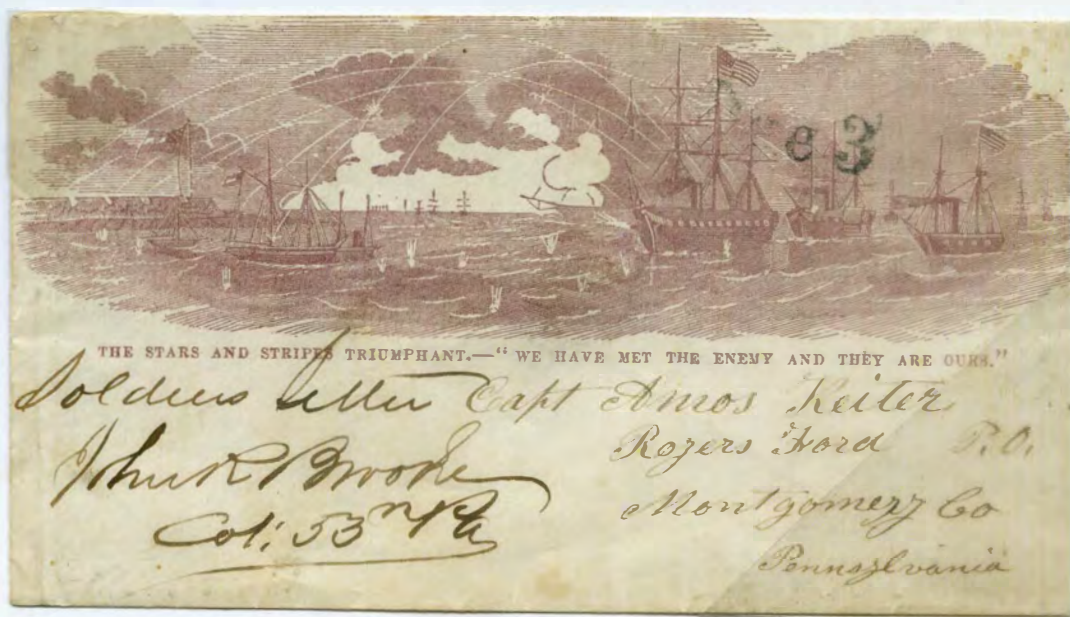 e 3
THE STARS AND STRIPES TRIUMPHANT.—"WE HAVE MET THE ENEMY AND THEY ARE OURS."
Soldiers letter
John R Brooke
Col; 53rd Pa
Capt Amos Keiter
Rogers Ford P.O.
Montgomery Co
Pennsylvania